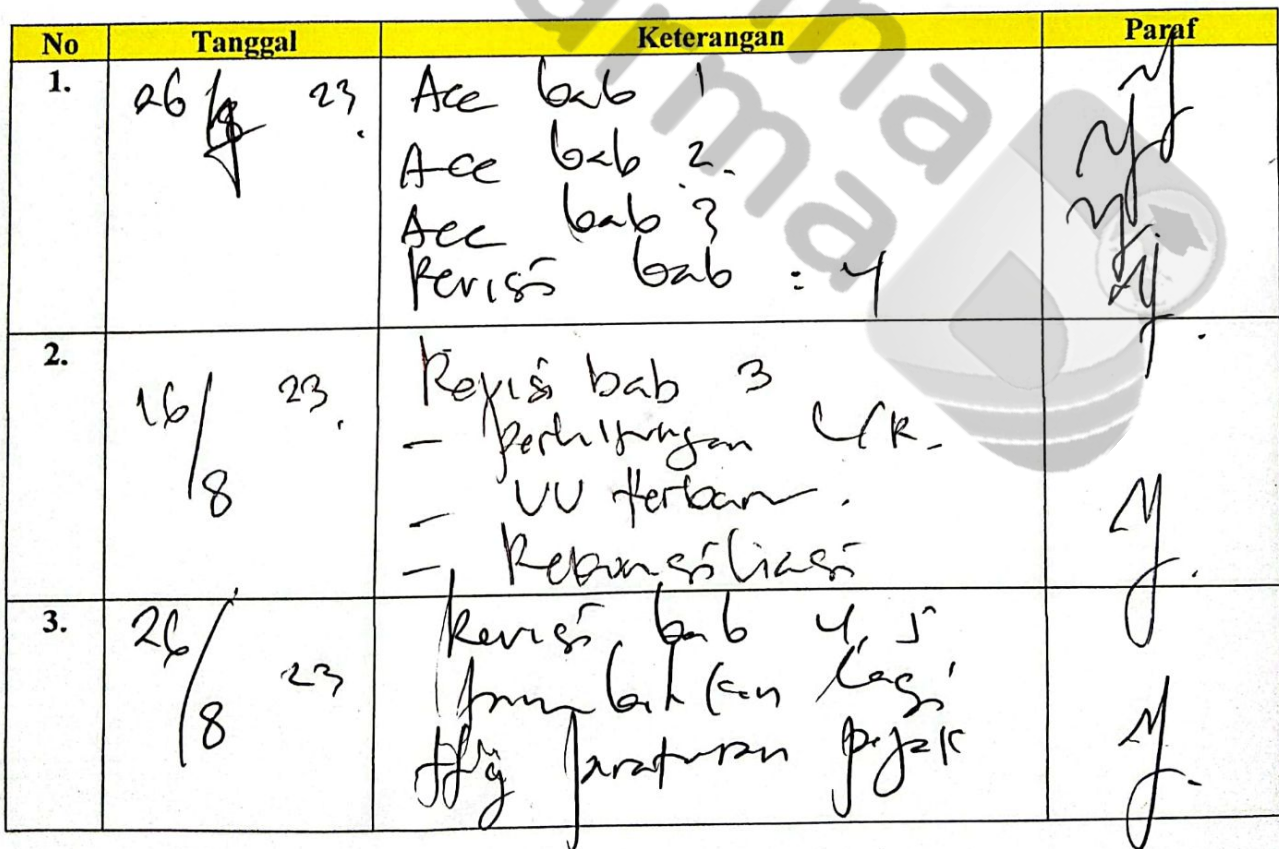 No Tanggal Keterangan Paraf
1. 26/8 23. Acc bab 1
Acc bab 2.
Acc bab 3
Revisi bab : 4
2. 16/8 23. Revisi bab 3
- Perhitungan
- UU terbaru.
- Rekonsiliasi
3. 26/8 23 Revisi bab 4, 5
tambahkan lagi
ttg peraturan pajak